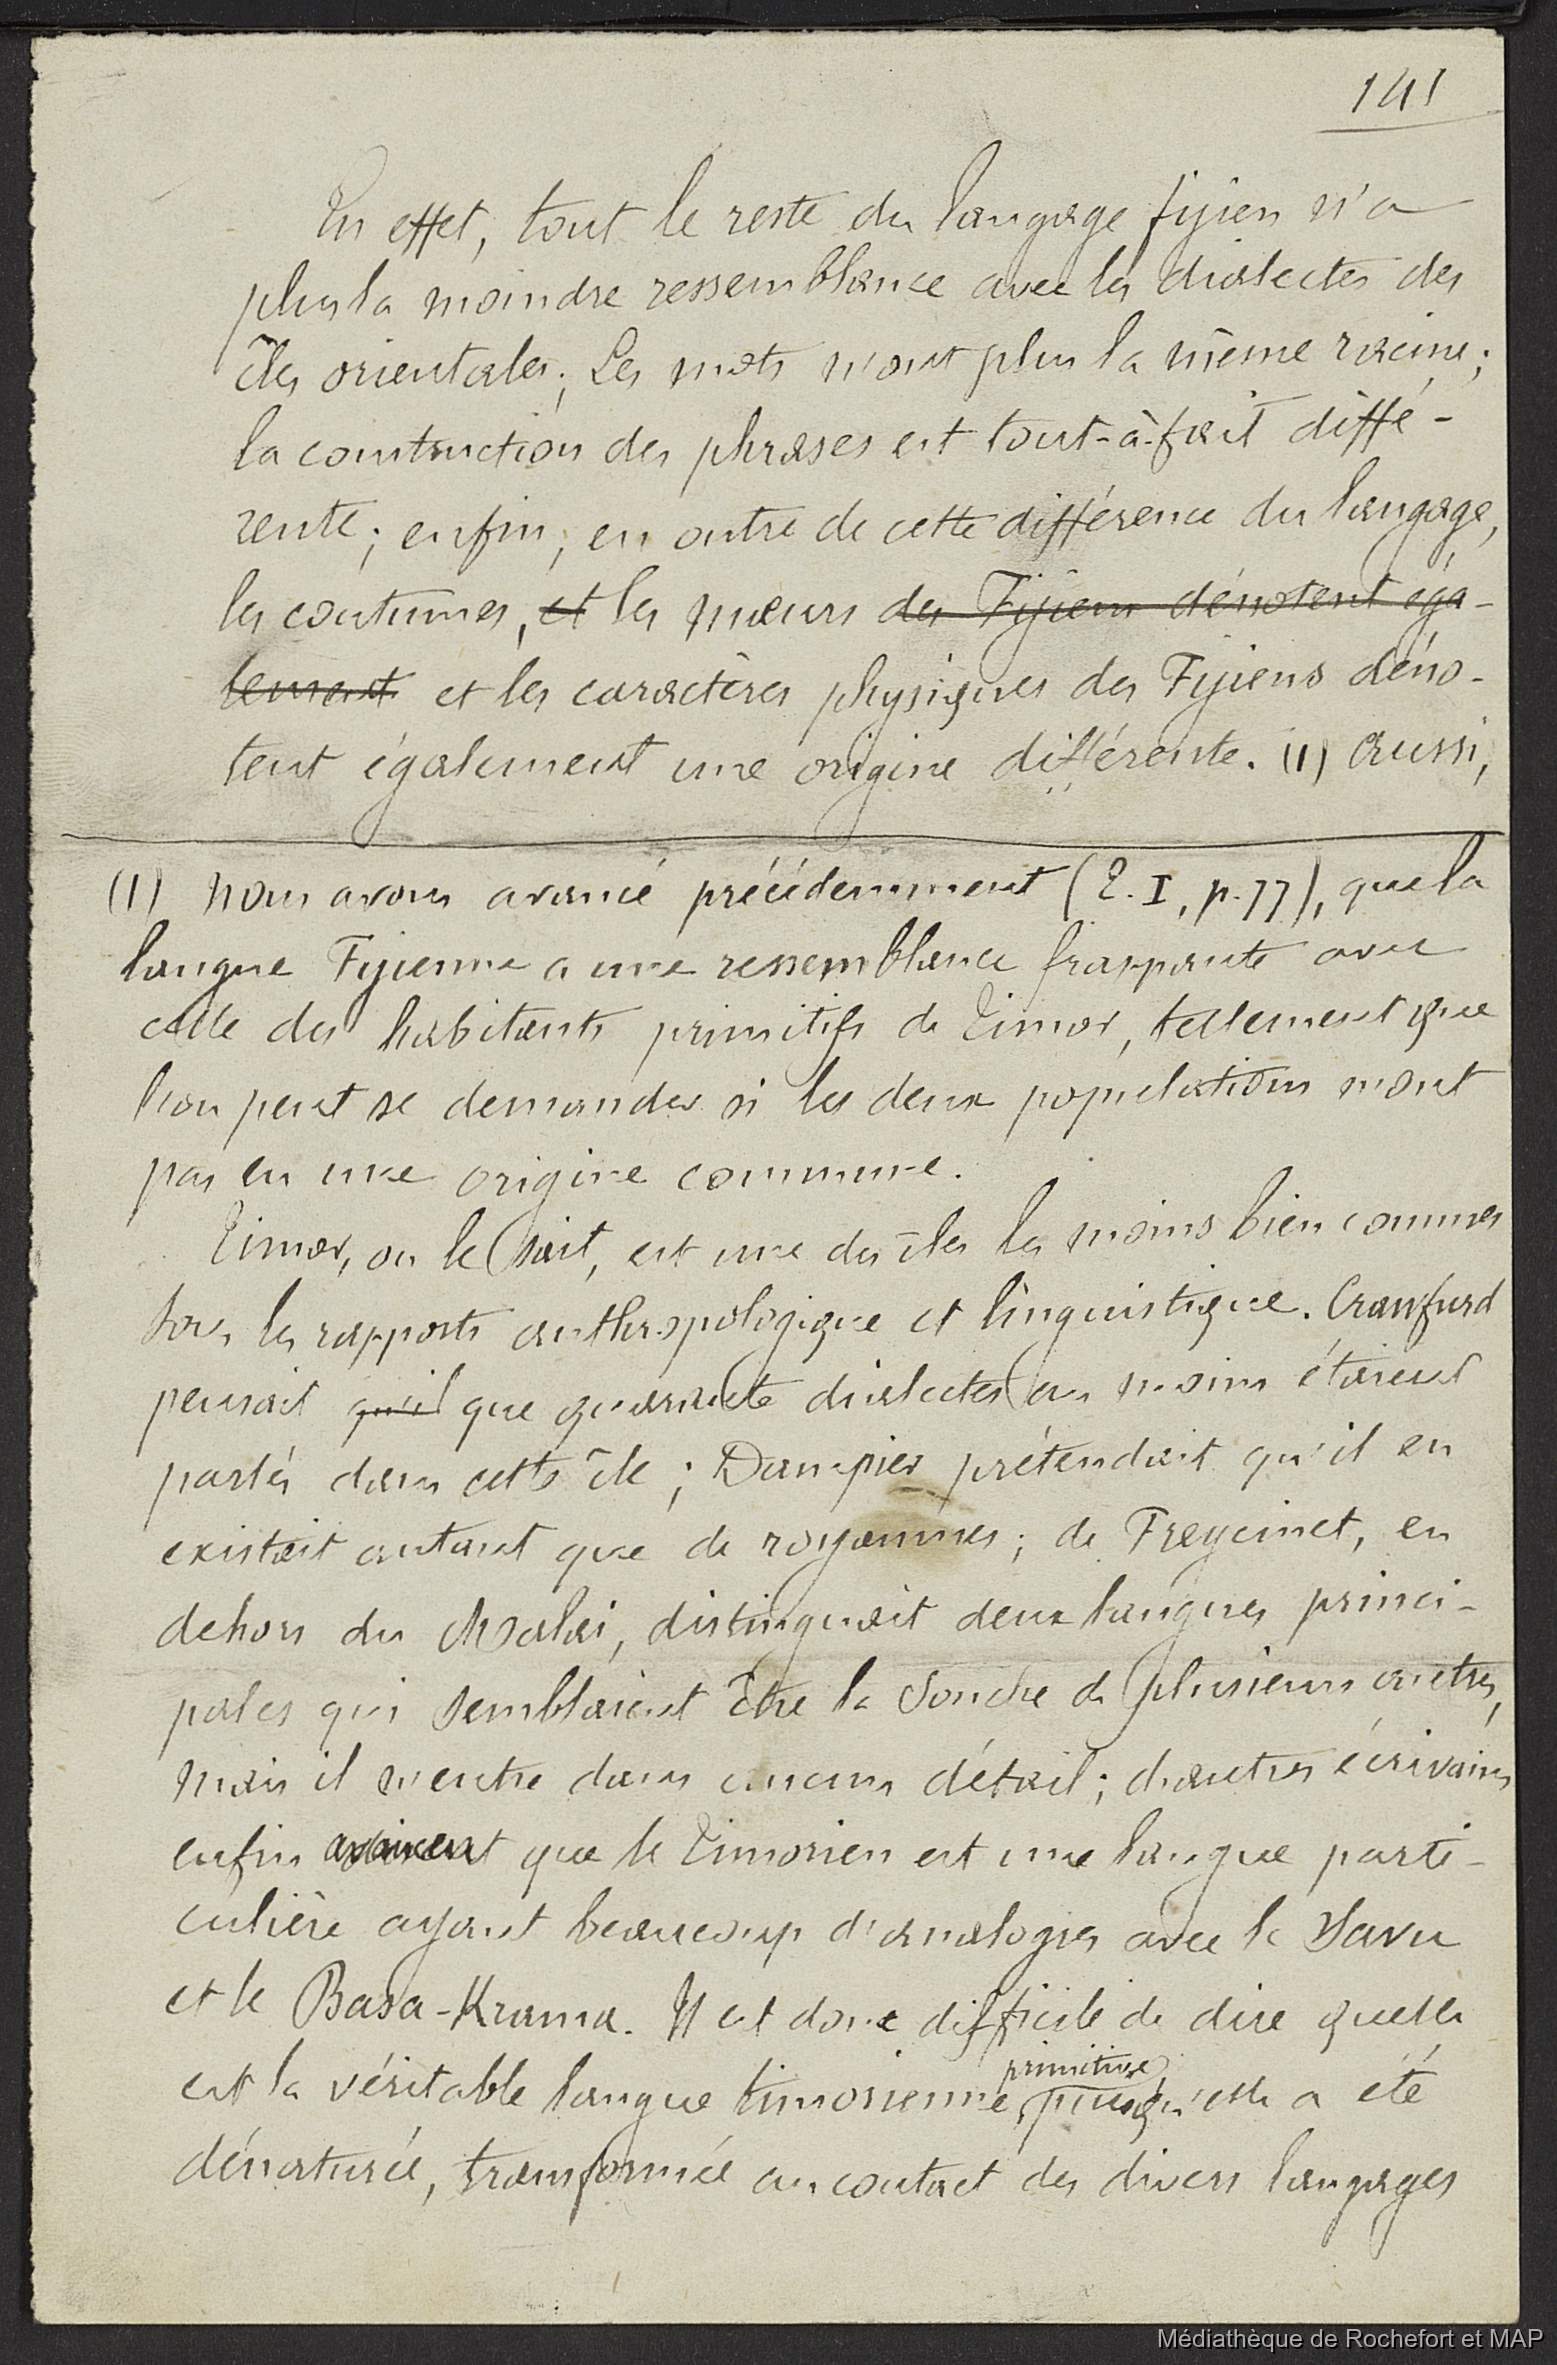 141
En effet, tout le reste du langage fijien n'a
plus la moindre ressemblance avec les dialectes des
îles orientales; Les mots n'ont plus la même racine;
la construction des phrases est tout-à-fait diffé-
rente; enfin, en outre de cette différence du langage,
les coutumes, et les mœurs des Fijiens dénotent éga-
lement et les caractères physiques des Fijiens déno-
tent également une origine différente. (1) Aussi,
(1) Nous avons avancé précédemment (T. I, p. 77), que la
langue Fijienne a une ressemblance frappante avec
celle des habitants primitifs de Timor, tellement que
l'on peut se demander si les deux populations n'ont
pas eu une origine commune.
Timor, on le sait, est une des îles les moins bien connues
sous les rapports anthropologique et linguistique. Crawfurd
pensait qu'il que quarante dialectes au moins étaient
parlés dans cette île; Dampier prétendait qu'il en
existait autant que de royaumes; de Freycinet, en
dehors du Malai, distinguait deux langues princi-
pales qui semblaient être la souche de plusieurs autres,
mais il n'entre dans aucun détail; d'autres écrivains
enfin avancent que le Timorien est une langue parti-
culière ayant beaucoup d'analogies avec le Savu
et le Basa-Krama. Il est donc difficile de dire quelle
est la véritable langue timorienne primitive, puisqu'elle a été
dénaturée, transformée au contact des divers langages
Médiathèque de Rochefort et MAP